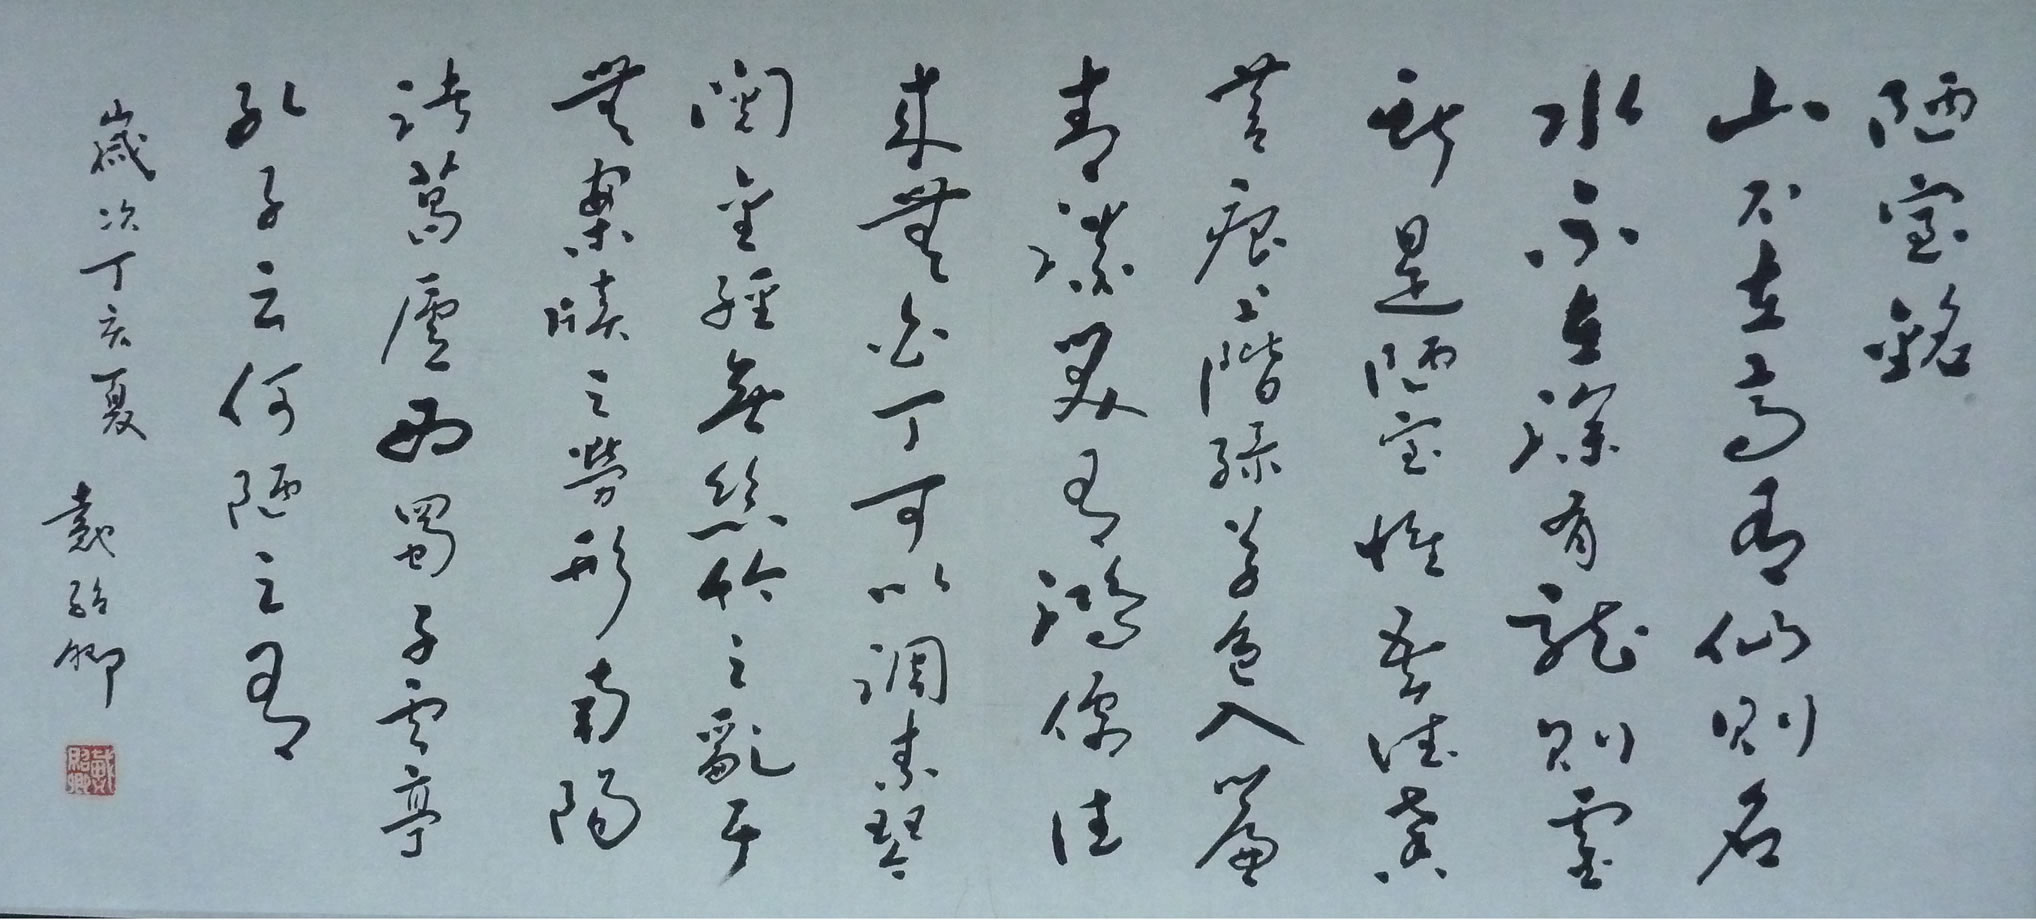 陋室銘
山不在高有仙則名
水不在深有龍則靈
斯是陋室惟吾德馨
苔痕上階綠草色入簾
青談笑有鴻儒往
來無白丁可以調素琴
閱金經無絲竹之亂耳
無案牘之勞形南陽
諸葛廬西蜀子雲亭
孔子云何陋之有
歲次丁亥夏 戴卿